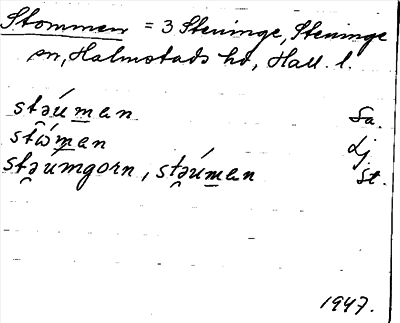 Stommen = 3 Steninge, Steninge
sn, Halmstads hd, Hall. l.
stə̯úm̲an Sa.
stώm̲an Lj
stə̯úmgorn, stə̯úm̲an St.
1947.